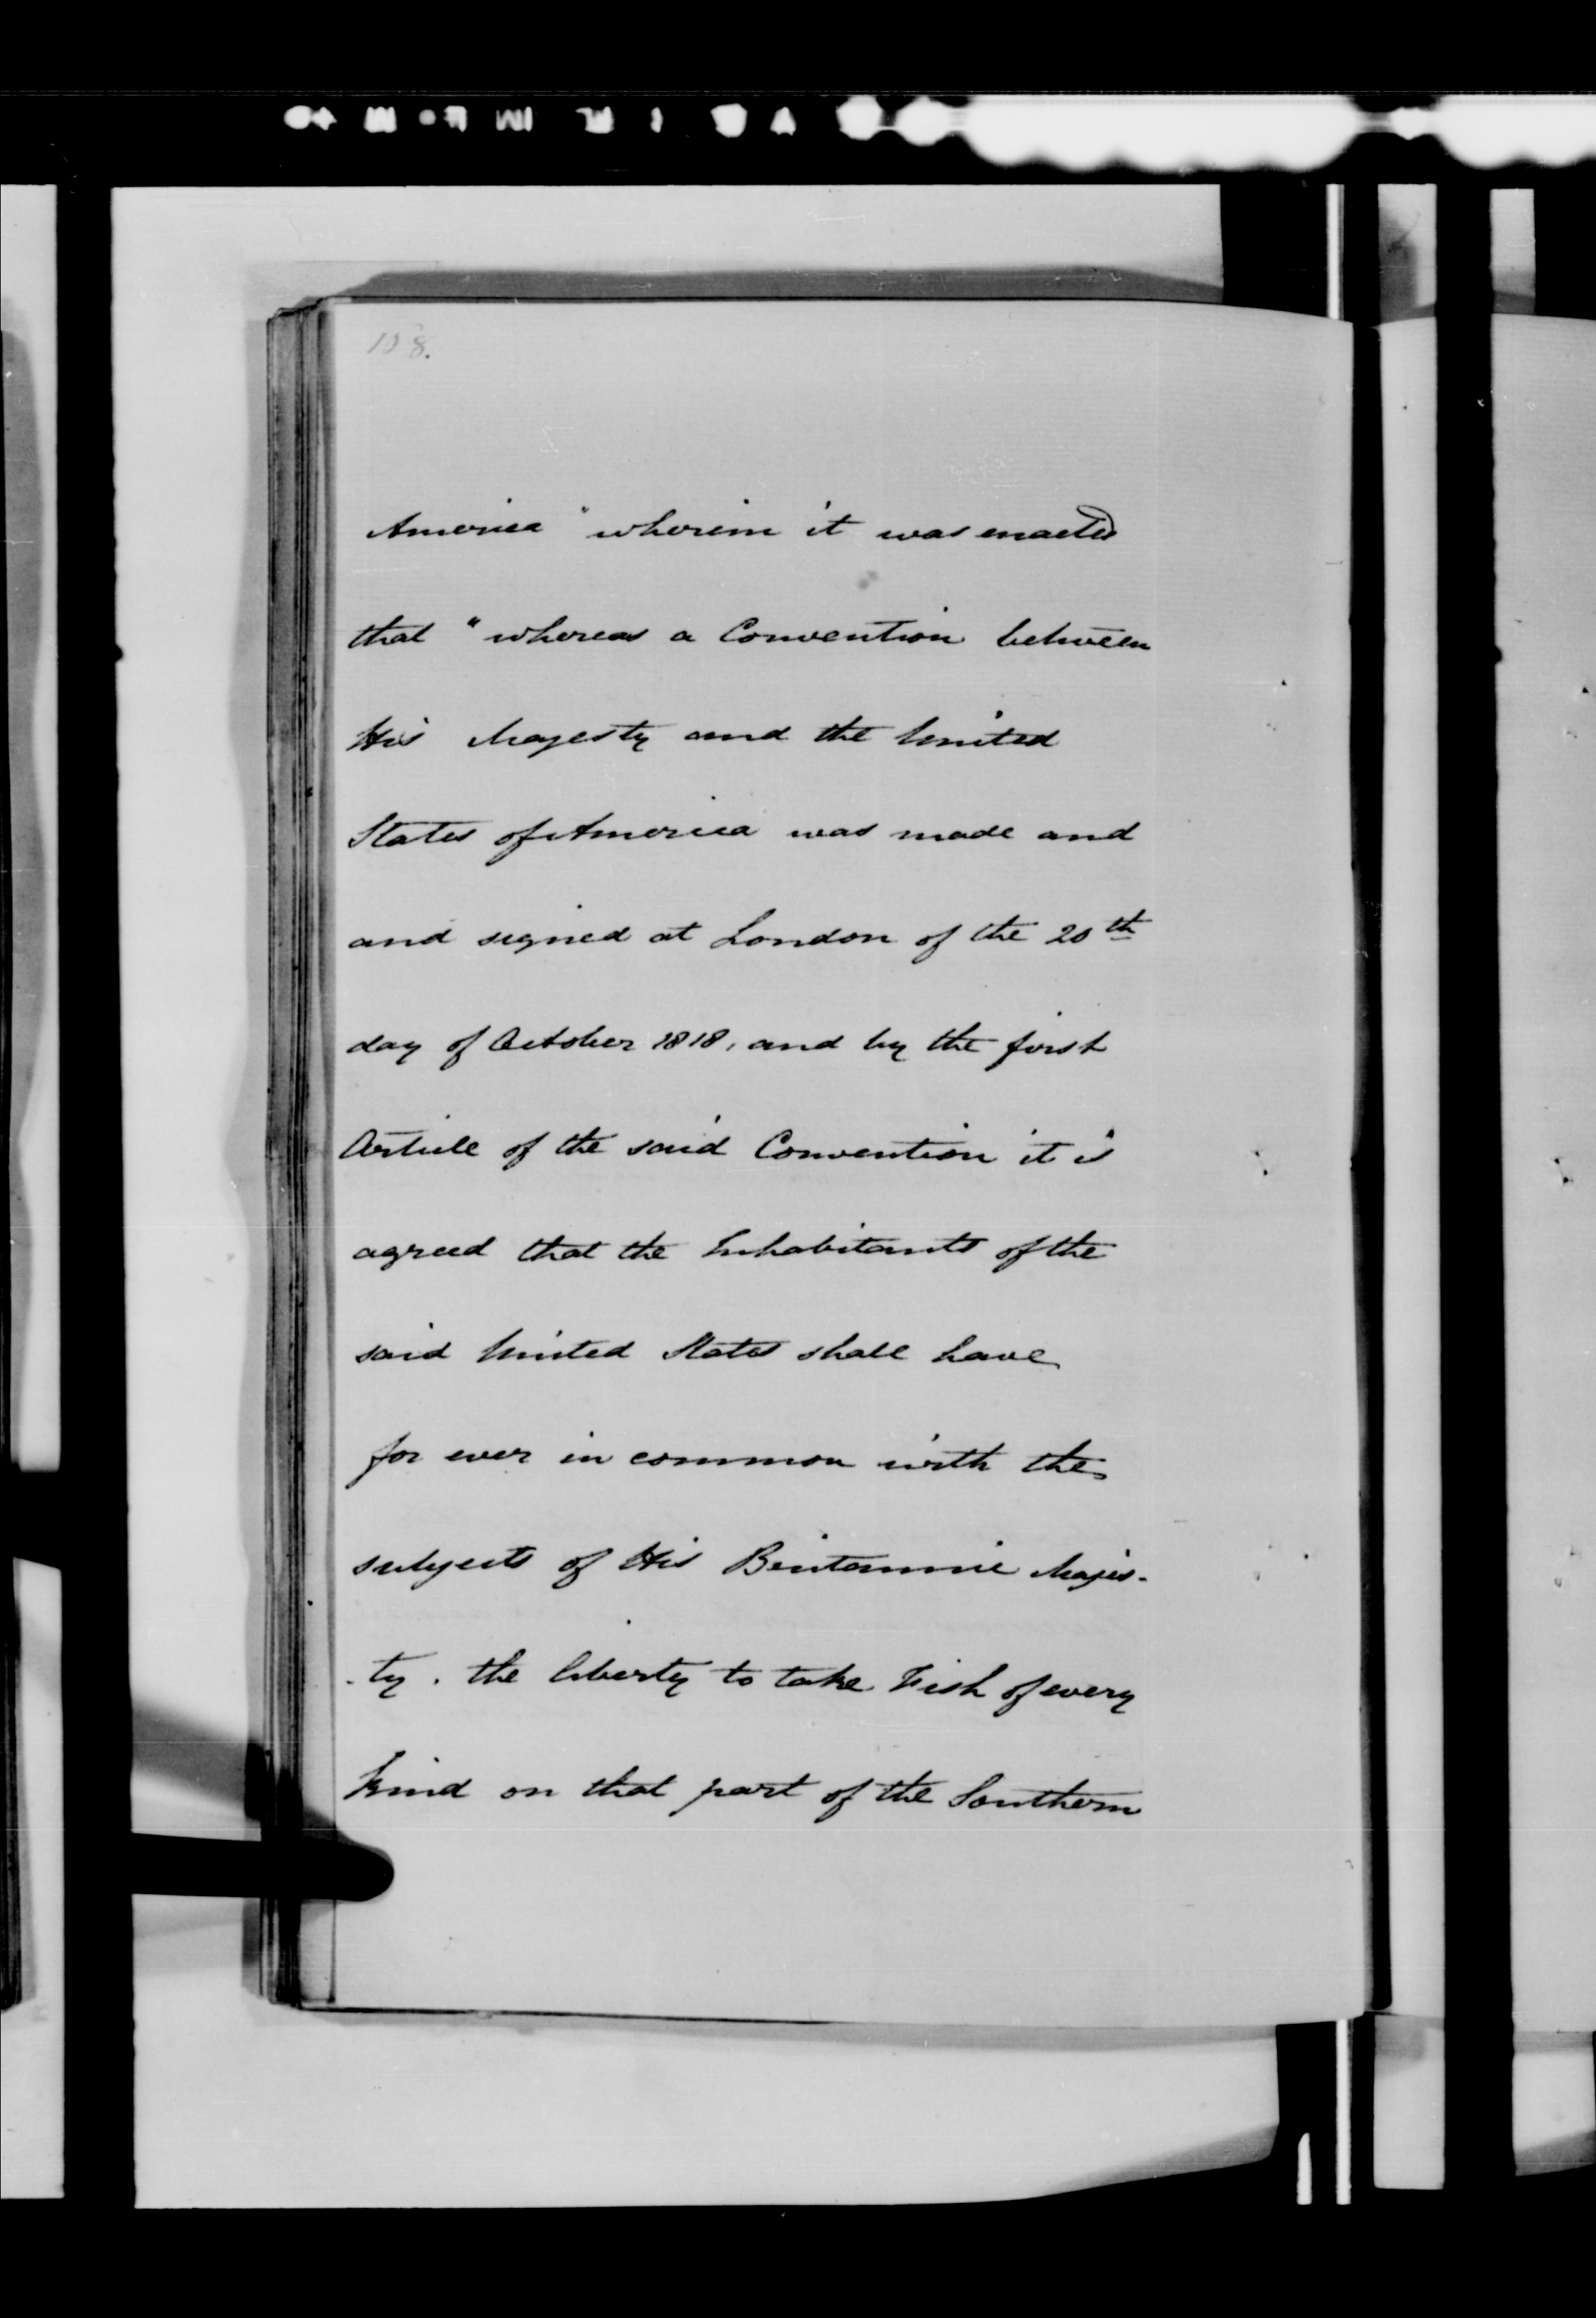 108.
America" wherein it was enacted
that "whereas a Convention between
His Majesty and the United
States of America was made and
and signed at London of the 20th
day of October 1818, and by the first
Article of the said Convention it is
agreed that the Inhabitants of the
said United States shall have
for ever in common with the
subjects of His Britannic Majes-
-ty. the liberty to take Fish of every
kind on that part of the Southern